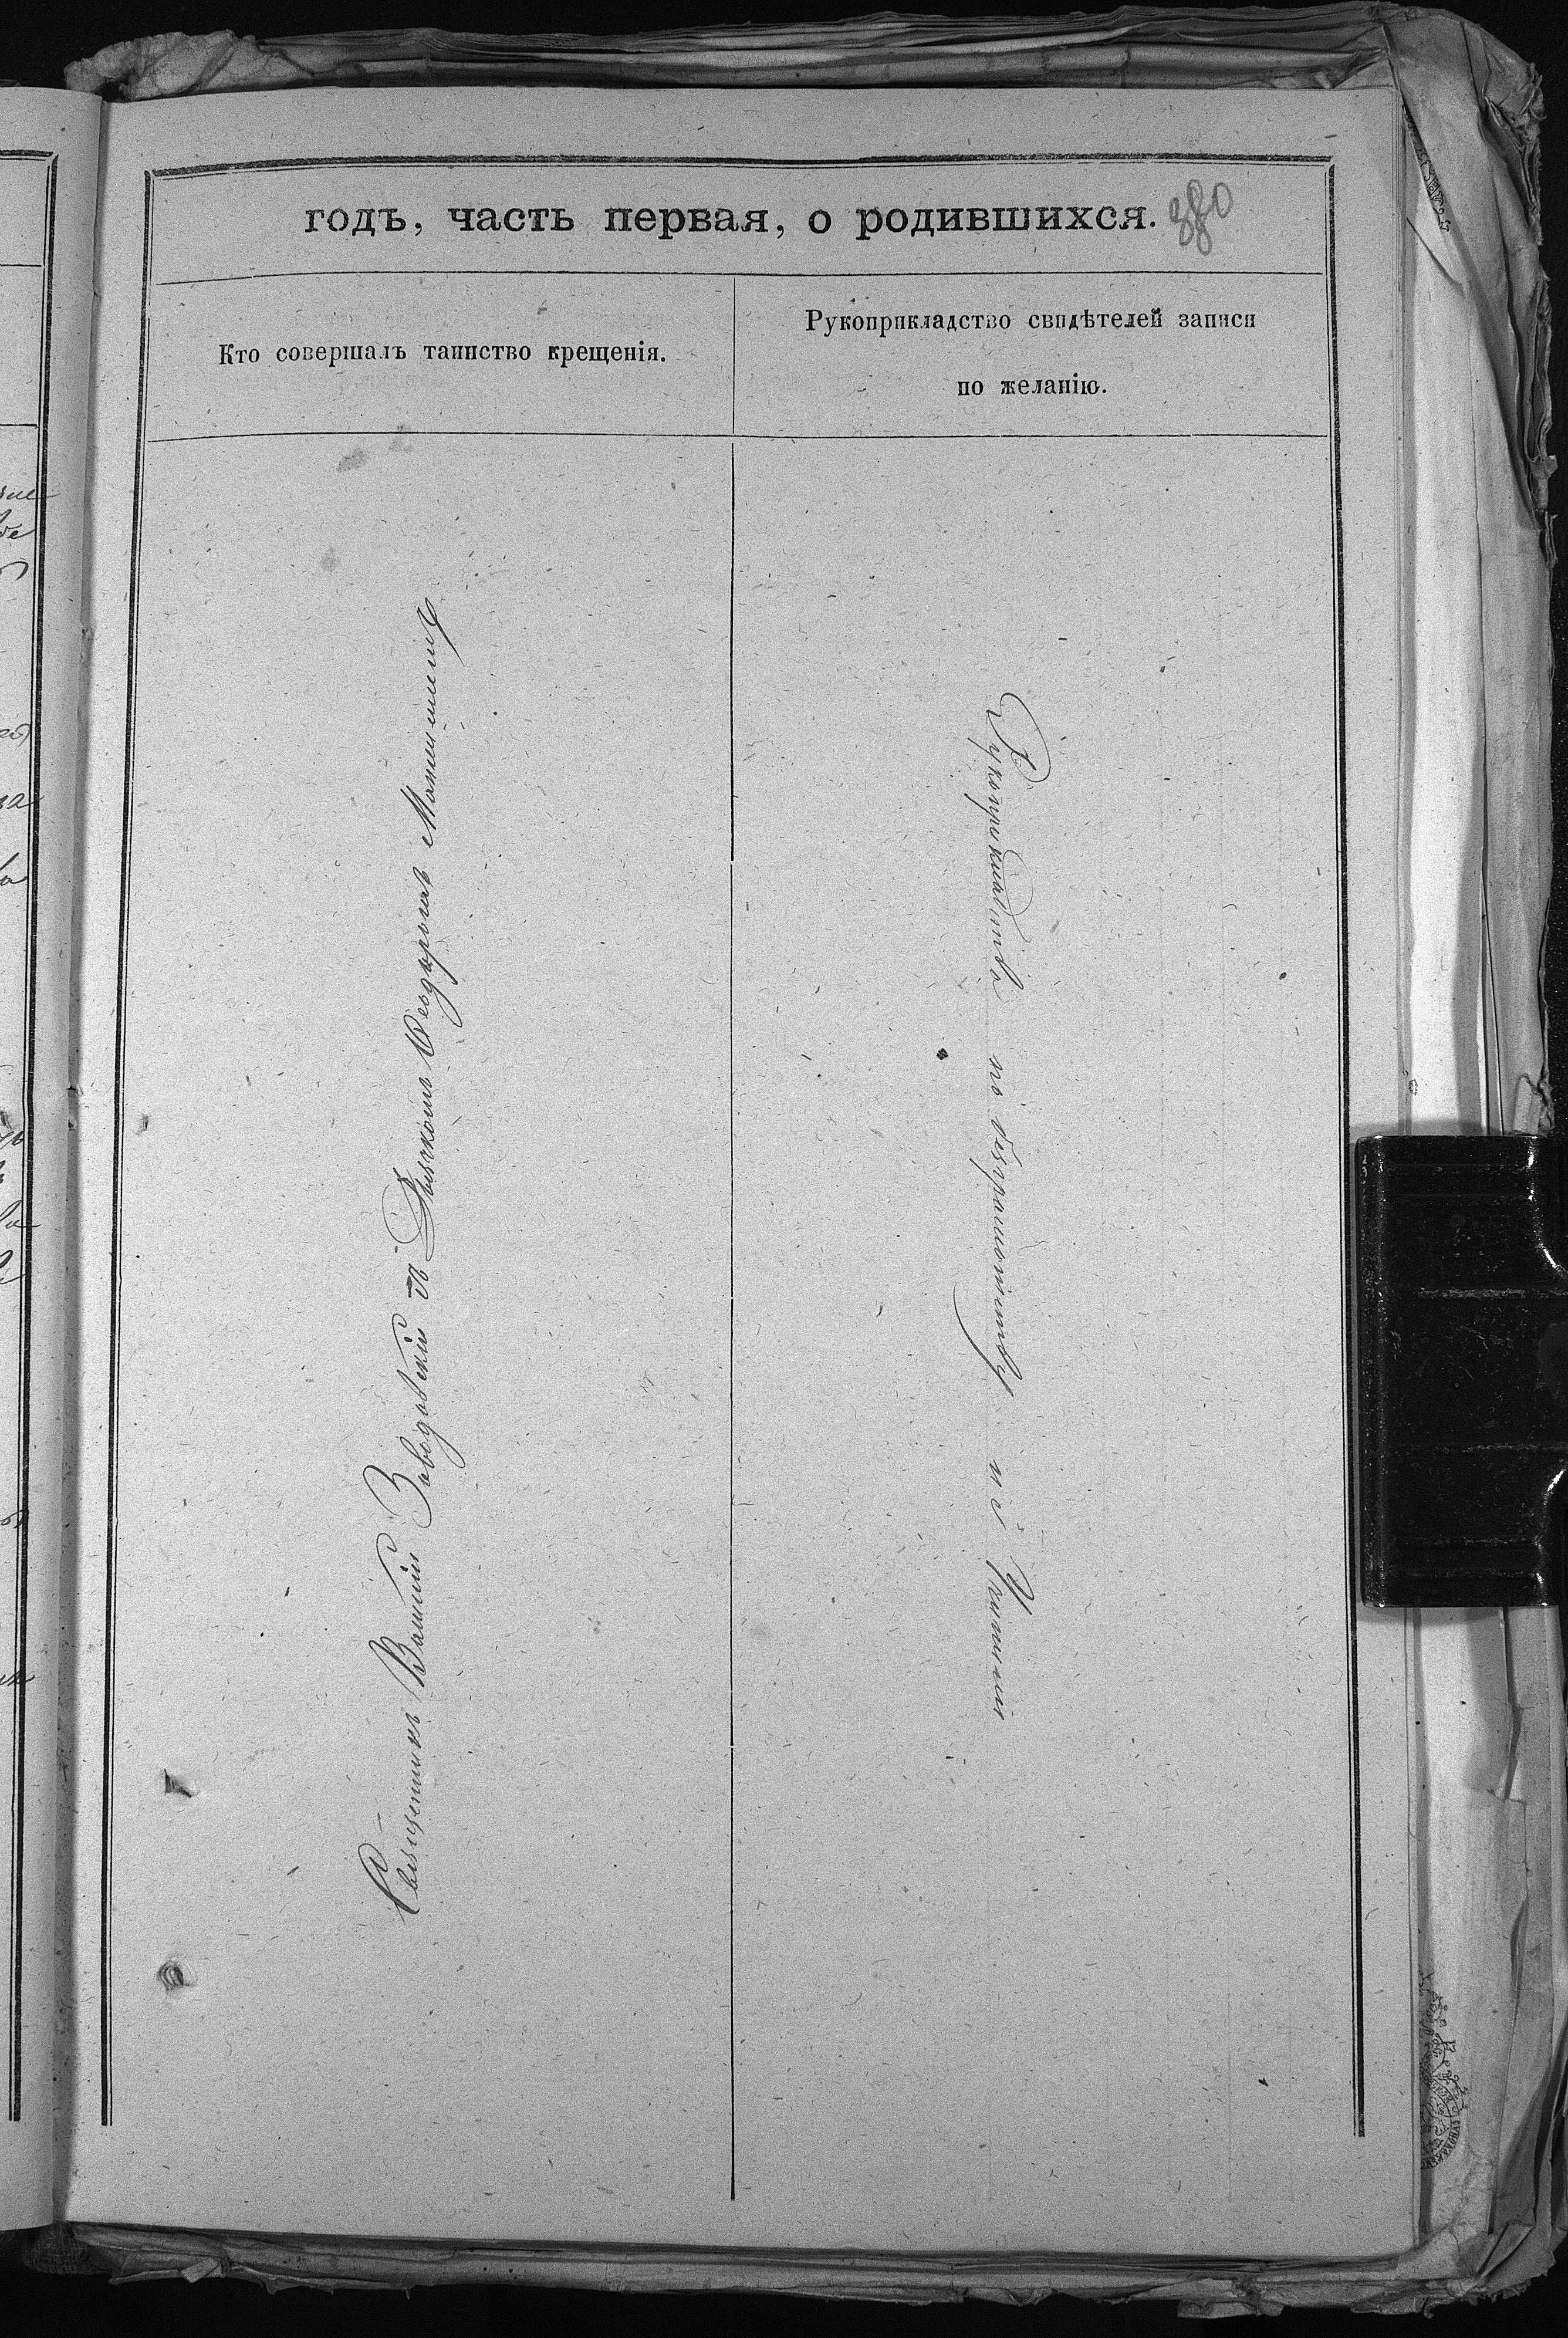 годъ, часть первая, о родившихся. 380
Кто совершалъ таинство крещенія.
Рукоприкладство свидѣтелей записи
по желанію.
Священникъ Василій Заводовскій съ Дьякомъ Ѳеодоромъ
Рукоприкладства по безграмотству не учинили